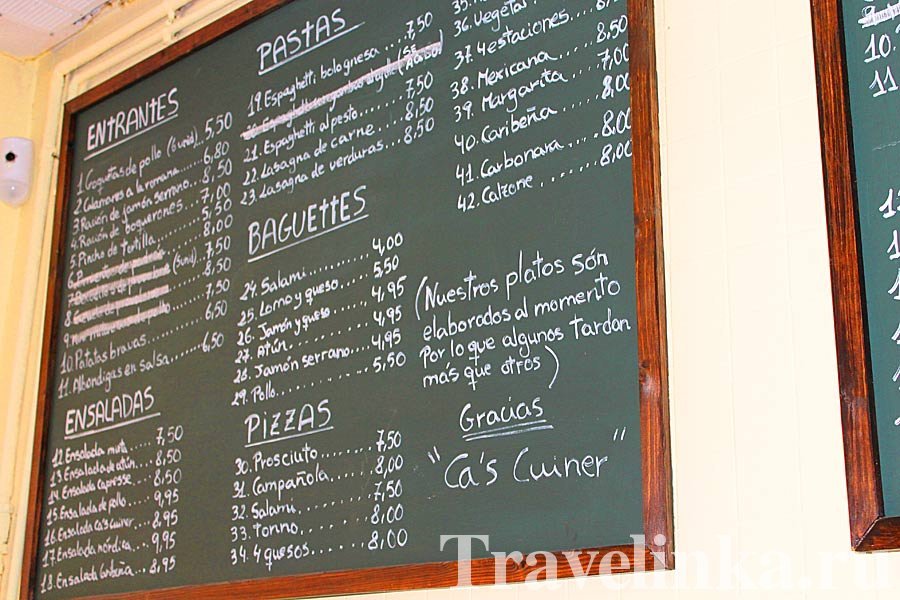 ENTRANTES
1. Croquetas de pollo (6 unid) 5,50
2. Calamares a la romana 6,80
3. Ración de jamón serrano 8,50
4. Ración de boquerones 7,00
5. Pincho de tortilla 5,50
6. 8,00
7. (5 unid) 7,50
8. 8,50
9. 7,50
10. Patatas bravas 6,50
11. Albondigas en salsa 6,50
ENSALADAS
12. Ensalada mixta 7,50
13. Ensalada de atún 8,50
14. Ensalada Capresse 8,50
15. Ensalada de pollo 9,95
16. Ensalada Ca's Cuiner 8,95
17. Ensalada nórdica 9,95
18. Ensalada Caribeña 8,95
PASTAS
19. Espaghetti bolognesa 7,50
20. Espaghetti
21. Espaghetti al pesto 7,50
22. Lasagna de carne 8,50
23. Lasagna de verduras 8,50
BAGUETTES
24. Salami 4,00
25. Lomo y queso 5,50
26. Jamón y queso 4,95
27. Atún 4,95
28. Jamón serrano 4,95
29. Pollo 5,50
PIZZAS
30. Prosciuto 7,50
31. Campañola 8,00
32. Salami 7,50
33. Tonno 8,00
34. 4 quesos 8,00
35.
36. Vegetal
37. 4 estaciones 8,50
38. Mexicana 7,00
39. Margarita 8,00
40. Caribeña 8,00
41. Carbonara 8,00
42. Calzone
(Nuestros platos són
elaborados al momento
Por lo que algunos tardan
más que otros)
Gracias
"Ca's Cuiner"
10.
11.
Travelinka.ru